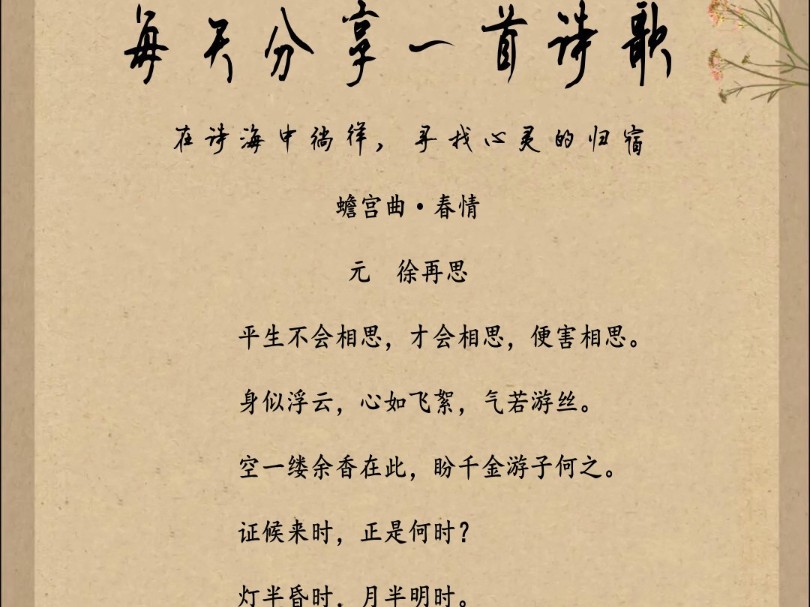 每天分享一首诗歌
在诗海中徜徉，寻找心灵的归宿
蟾宫曲·春情
元 徐再思
平生不会相思，才会相思，便害相思。
身似浮云，心如飞絮，气若游丝。
空一缕余香在此，盼千金游子何之。
证候来时，正是何时？
灯半昏时，月半明时。